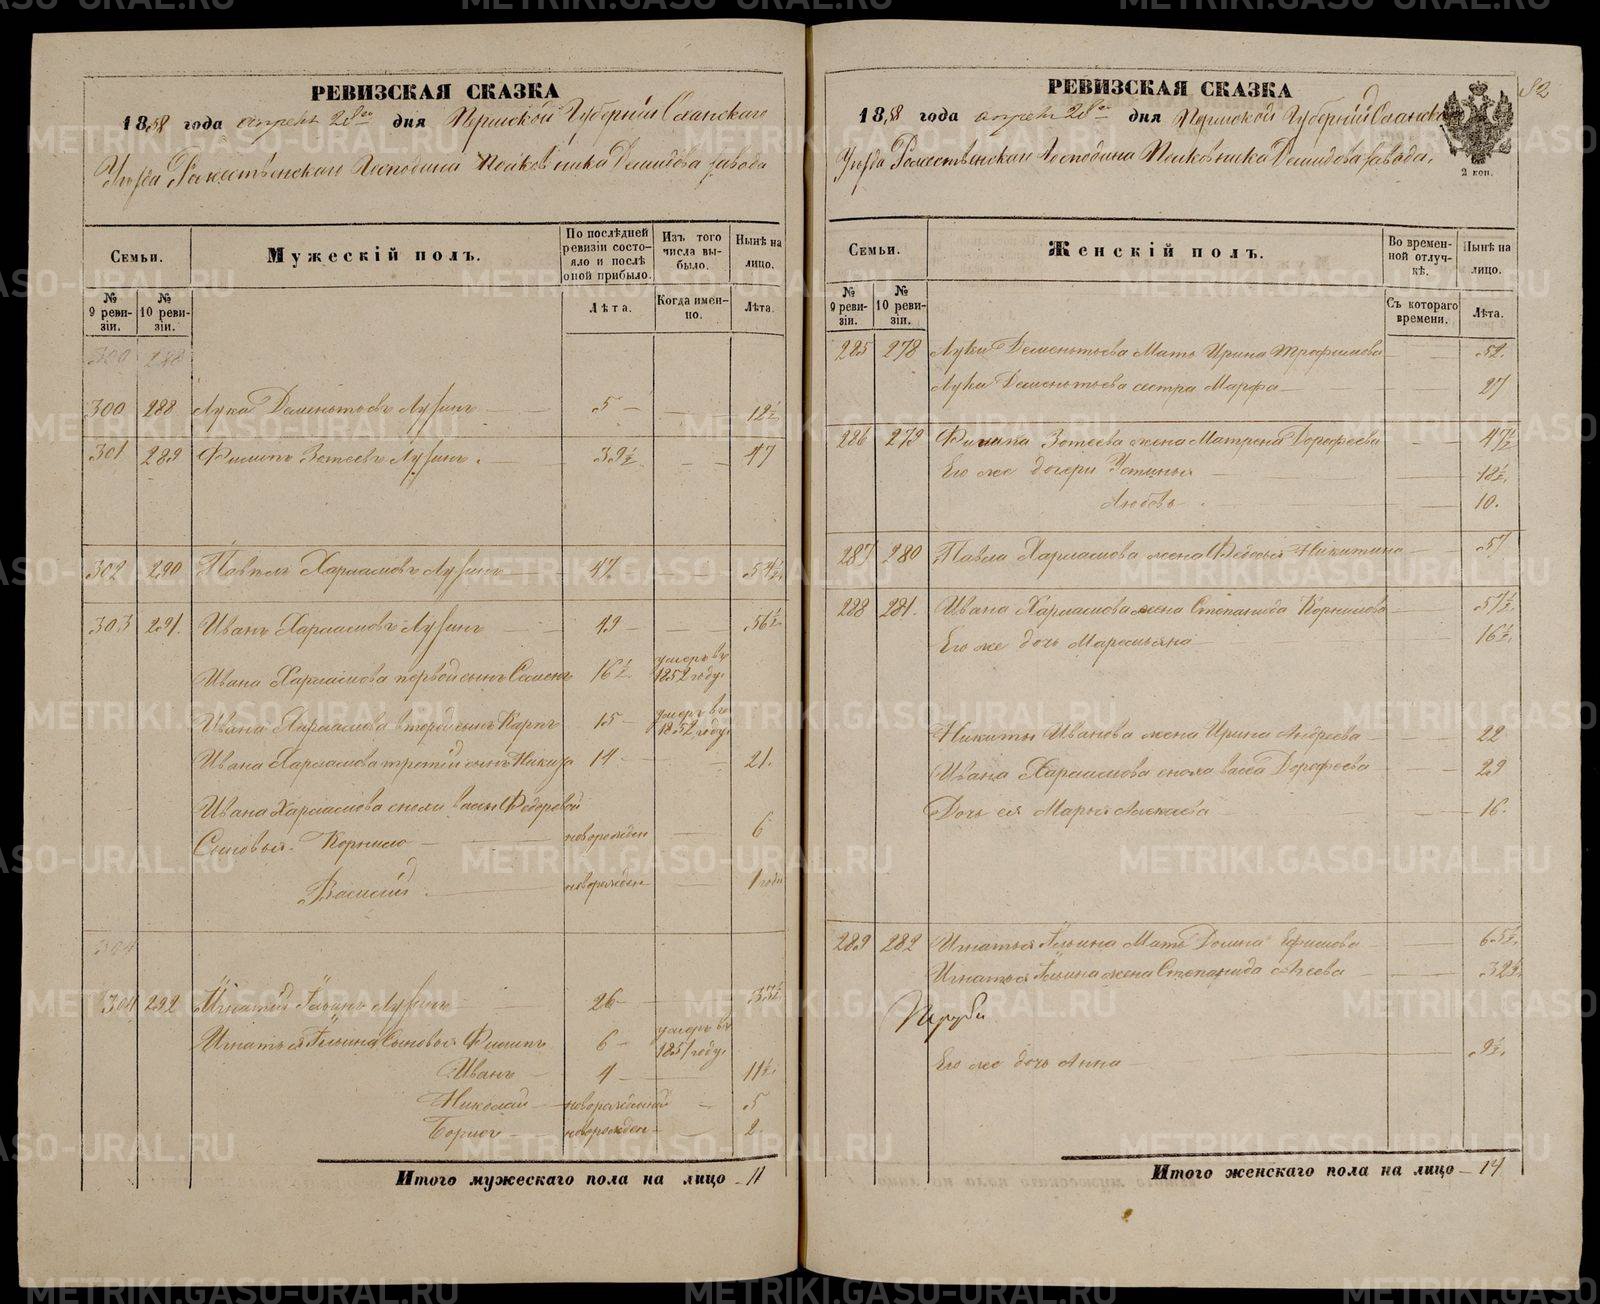 РЕВИЗСКАЯ СКАЗКА
1858 года апреля 28го дня Пермской Губернiи Осинскаго
Уезда Рожественскаго Господина Полковника Демидова завода
Семьи.
Мужескiй полъ.
По послѣдней ревизiи состояло и послѣ оной прибыло.
Изъ того числа выбыло.
Нынѣ на лицо.
№ 9 ревизiи.
№ 10 ревизiи.
Лѣта.
Когда именно.
Лѣта.
300 288
300 288 Лука Дементьевъ Лузинъ 5 12½
301 289 Филипъ Зотеевъ Лузинъ. 39½ 47
302 290 Павелъ Харламовъ Лузинъ 47 54½
303 291. Иванъ Харламовъ Лузинъ 49 56½
Ивана Харламова первой сынъ Семенъ 16½ умеръ въ 1852 году
Ивана Харламова второй сынъ Карпъ 15 умеръ въ 1852 году
Ивана Харламова третiй сынъ Никита 14 21.
Ивана Харламова снохи Вассы Федоровой
Сыновья. Корнило новорожден 6
Василiй новорожден 1 года
304
304 292 Игнатiй Ильинъ Лузинъ 26 33½
Игнатья Ильина Сыновья Филипъ 6 умеръ въ 1851 году
Иванъ 4 11½.
Николай новорожденный 5
Борисъ новорожден 2.
Итого мужескаго пола на лицо 11
РЕВИЗСКАЯ СКАЗКА
82
1858 года апреля 28го дня Пермской Губернiи Осинскаго
Уезда Рожественскаго Господина Полковника Демидова завода.
2 коп.
Семьи.
Женскiй полъ.
Во временной отлучкѣ.
Нынѣ на лицо.
№ 9 ревизiи.
№ 10 ревизiи.
Съ котораго времени.
Лѣта.
285 278 Луки Дементьева Мать Ирина Трофимова 52.
Луки Дементьева сестра Марфа 27
286 279 Филипа Зотеева жена Матрена Дорофеева 47½
Его же дочери Устинья 18½.
Любовь 10.
287 280 Павла Харламова жена Федосья Никитина 57
288 281. Ивана Харламова жена Степанида Корнилова 57½.
Его же дочь Маремьяна 16½.
Никиты Иванова жена Ирина Андреева 22
Ивана Харламова сноха Васса Дорофеева 29
Дочь ея Марья 16.
289 282 Игнатья Ильина Мать Домна Ефимова 65½.
Игнатья Ильина жена Степанида 32½.
Его же дочь Анна 9½.
Итого женскаго пола на лицо 14
METRIKI.GASO-URAL.RU